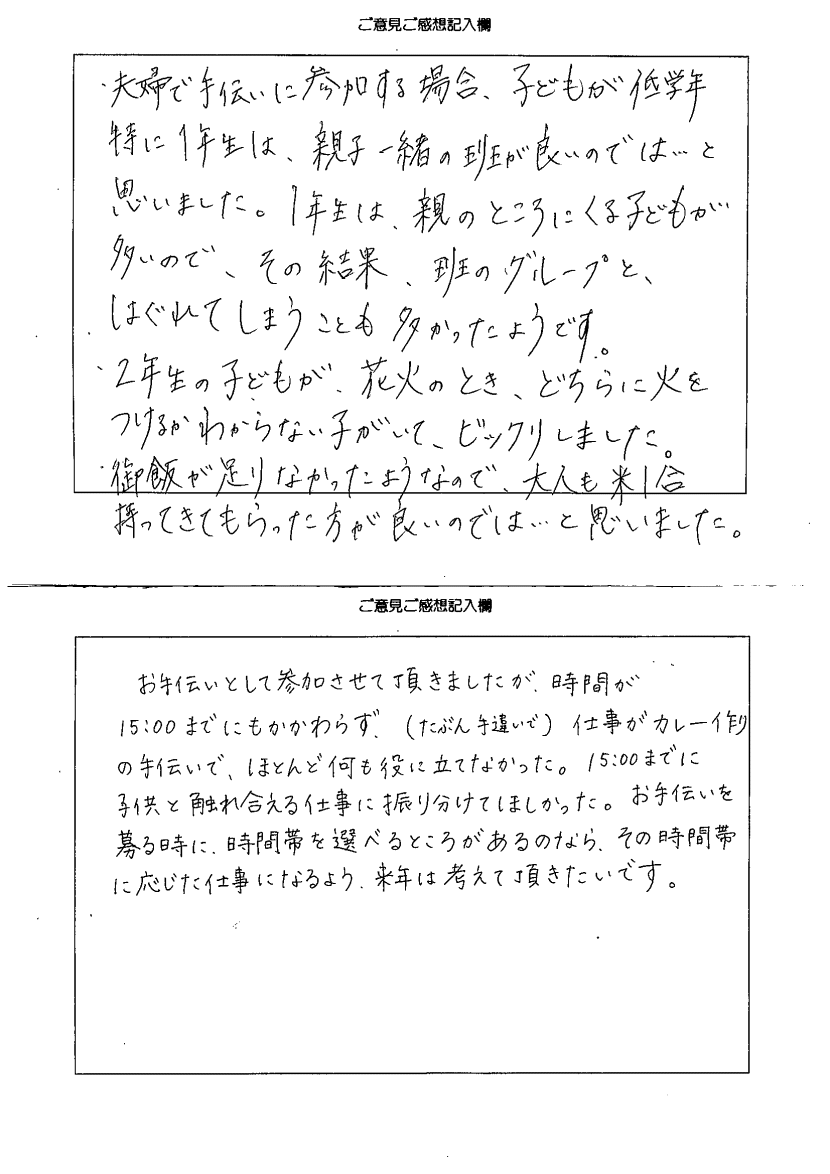 ご意見ご感想記入欄
・夫婦で手伝いに参加する場合、子どもが低学年
特に1年生は、親子一緒の班が良いのでは…と
思いました。1年生は、親のところにくる子どもが
多いので、その結果、班のグループと、
はぐれてしまうことも多かったようです。
・2年生の子どもが、花火のとき、どちらに火を
つけるかわからない子がいて、ビックリしました。
・御飯が足りなかったようなので、大人も米1合
持ってきてもらった方が良いのでは…と思いました。
ご意見ご感想記入欄
お手伝いとして参加させて頂きましたが、時間が
15:00までにもかかわらず、(たぶん手違いで) 仕事がカレー作り
の手伝いで、ほとんど何も役に立てなかった。15:00までに
子供と触れ合える仕事に振り分けてほしかった。お手伝いを
募る時に、時間帯を選べるところがあるのなら、その時間帯
に応じた仕事になるよう、来年は考えて頂きたいです。